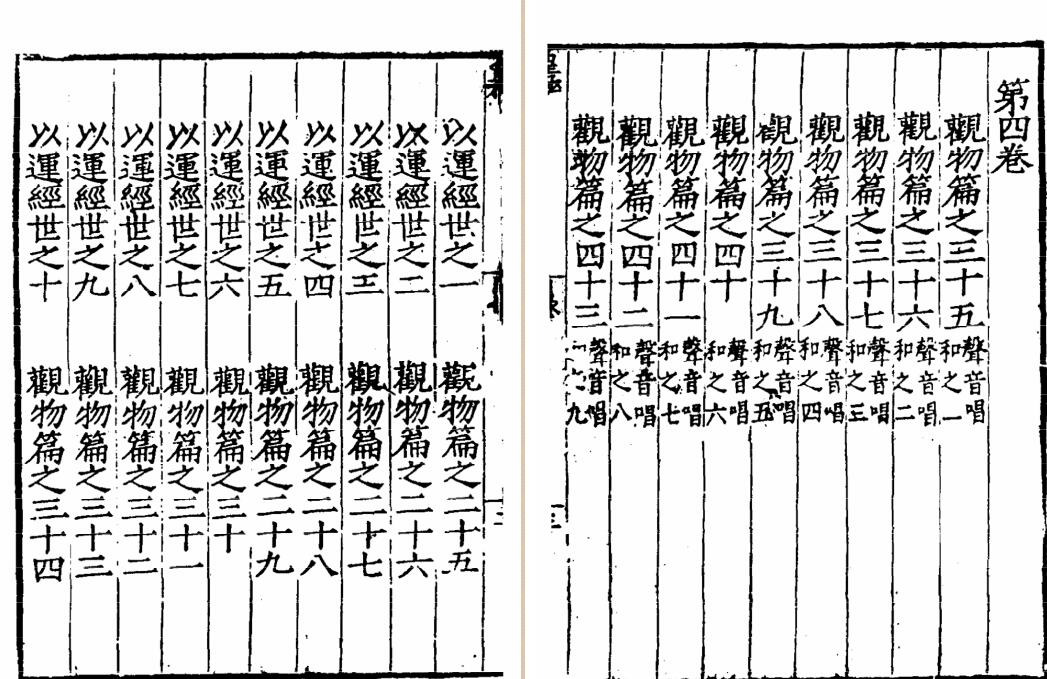 以運經世之一　觀物篇之二十五
以運經世之二　觀物篇之二十六
以運經世之三　觀物篇之二十七
以運經世之四　觀物篇之二十八
以運經世之五　觀物篇之二十九
以運經世之六　觀物篇之三十
以運經世之七　觀物篇之三十一
以運經世之八　觀物篇之三十二
以運經世之九　觀物篇之三十三
以運經世之十　觀物篇之三十四
第四卷
觀物篇之三十五　聲音唱和之一
觀物篇之三十六　聲音唱和之二
觀物篇之三十七　聲音唱和之三
觀物篇之三十八　聲音唱和之四
觀物篇之三十九　聲音唱和之五
觀物篇之四十　聲音唱和之六
觀物篇之四十一　聲音唱和之七
觀物篇之四十二　聲音唱和之八
觀物篇之四十三　聲音唱和之九